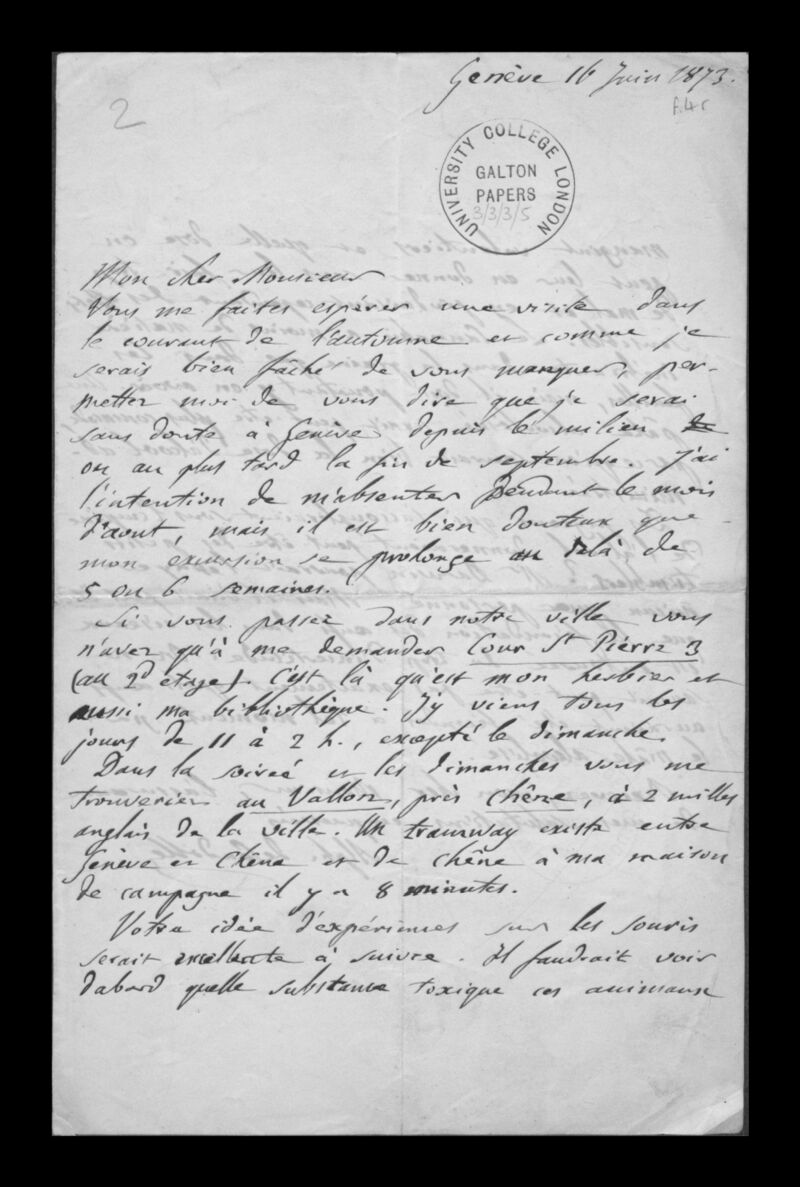 Genève 16 Juin 1873.
f.4r
2
UNIVERSITY COLLEGE LONDON
GALTON
PAPERS
3/3/3/5
Mon cher Monsieur
Vous me faites espérer une visite dans
le courant de l'automne et comme je
serais bien fâché de vous manquer, per-
mettez moi de vous dire que je serai
sans doute à Genève depuis le milieu
ou au plus tard la fin de septembre. J'ai
l'intention de m'absenter pendant le mois
d'aout, mais il est bien douteux que
mon excursion se prolonge au delà de
5 ou 6 semaines.
Si vous passez dans notre ville vous
n'avez qu'à me demander Cour St Pierre 3
(au 2d etage). C'est là qu'est mon herbier et
aussi ma bibliothèque. J'y viens tous les
jours de 11 à 2 h., excepté le dimanche.
Dans la soireé et les dimanches vous me
trouveriez au Vallon, près Chêne, à 2 milles
anglais de la ville. Un tramway existe entre
Genève et Chêne et de Chêne à ma maison
de campagne il y a 8 minutes.
Votre idée d'expériences sur les souris
serait excellente à suivre. Il faudrait voir
dabord quelle substance toxique ces animaux